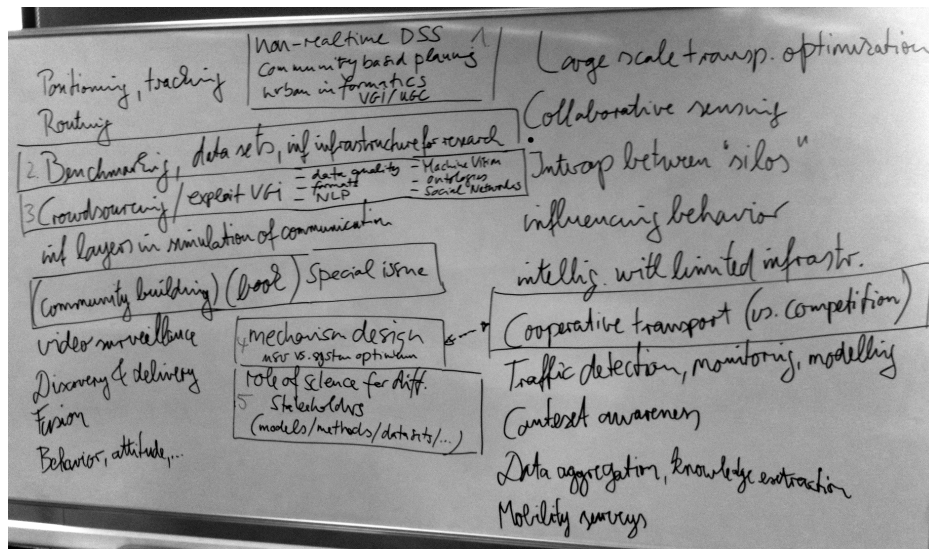 Positioning, tracking
Routing
non-realtime DSS 1.
community based planning
urban informatics
VGI/UGC
2. Benchmarking, data sets, inf infrastructure for research
3 Crowdsourcing/exploit VGI
- data quality
- formats
- NLP
- Machine Vision
- ontologies
- Social Networks
inf layers in simulation of communication
(community building) (book) special issue
video surveillance
Discovery & delivery
Fusion
Behavior, attitude,...
4 mechanism design
user vs. system optimum
5 role of science for diff.
Stakeholders
(models/methods/datasets/...)
Large scale transp. optimization
Collaborative sensing
Interop between "silos"
influencing behavior
intellig. with limited infrastr.
Cooperative transport (vs. competition)
Traffic detection, monitoring, modelling
Context awareness
Data aggregation, knowledge extraction
Mobility surveys